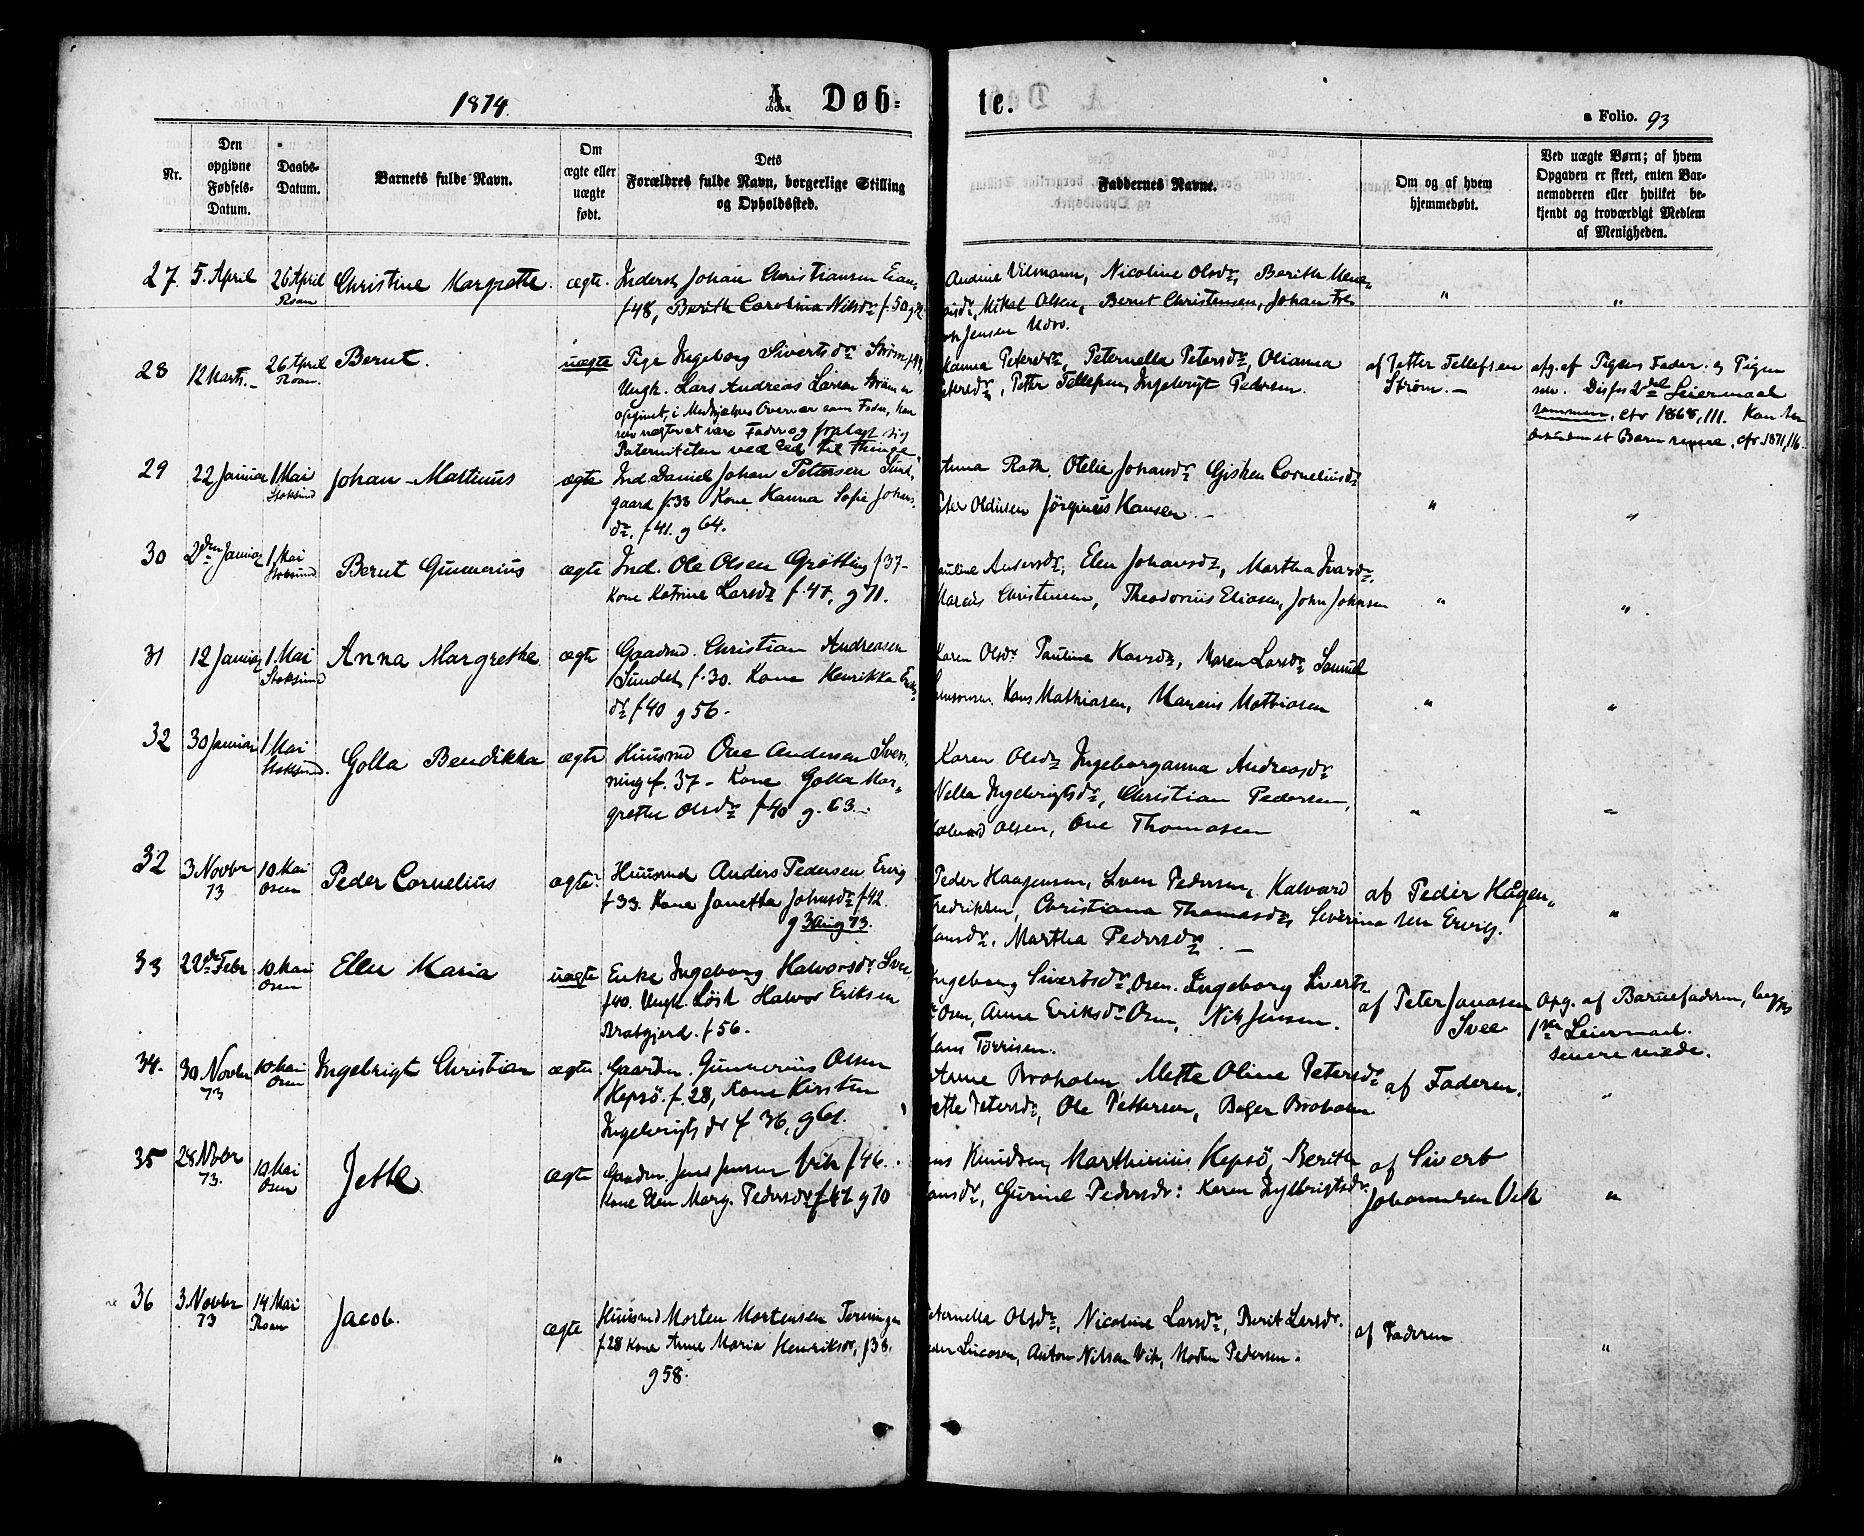 1874.
A. Døb-
te.
a Folio. 93
Nr.
Den opgivne Fødsels-Datum.
Daabs-Datum.
Barnets fulde Navn.
Om ægte eller uægte født.
Dets Forældres fulde Navn, borgerlige Stilling og Opholdssted.
Faddernes Navne.
Om og af hvem hjemmedøbt.
Ved uægte Børn; af hvem Opgaven er skeet, enten Barnemoderen eller hvilket bekjendt og troværdigt Medlem af Menigheden.
27. 5. April 26 April Roan Christine Margrethe. ægte. Inderst Johan Christiansen
f 48, Berith Carolina Nilsdr f. 50
Andrine Vilmann, Nicoline Olsdr, Berith
Mikal Olsen, Bernt Christensen, Johan
Jensen
"
"
28 12 Marts. 26 April Roan. Bernt. uægte Pige Ingeborg Sivertsdr Strøm f 44,
Ungk. Lars Andreas Larsen Strøm er
opgivet, i Medhjælpers Overvær som Fader, han
Fader og
Paterniteten ved Eed til Thinge.
Petersdr, Peternella Petersdr, Olianna
Petter Tellefsen, Ingebrigt Pedersen.
af Petter Tellefsen
Strøm.
opg. af Pigens Fader. og Pigen
selv. Disses 2det Leiermaal
sammen, cfr 1868, 111. Han
et Barn senere, cfr. 1871, 116
29 22 Januar 1 Mai Stoksund Johan Martinus ægte Ind. Daniel Johan Pettersen Sund-
gaard f. 33 Kone Hanna Sofie Johans
dr. f 41. g 64.
Anna Roth, Otelie Johansdr, Gjisken Corneliusdr
Oldinsen Jørginus Hansen
"
"
30 2den Januar 1 Mai Stoksund Bernt Gunnerius ægte Ind. Ole Olsen Grøtting f 37
Kone Katrine Larsdr f. 47, g 71.
Andersdr, Elen Johansdr, Martha Ivarsdr,
Marcus Christensen, Theodorius Eliasen, John Johnsen
"
"
31 12 Januar 1. Mai Stoksund Anna Margrethe. ægte Gaardmd. Christian Andreasen
Sundet f. 30. Kone Henrikka
dr f 40 g 56.
Karen Olsdr Pauline Hansdr, Maren Larsdr Samuel
Hans Mathiasen, Marcus Mathiasen
"
"
32 30 Januar 1 Mai Stoksund. Golla Bendikka ægte Huusmd Ove Andersen Sven-
ning f. 37 - Kone Golla Mar-
grethe Olsdr f 40 g. 63.
Karen Olsdr Ingeborganna Andreasdr
Nella Ingebrigtsdr, Christian Pedersen,
Olsen, Ove Thomasen
"
"
32 3 Novbr 73 10 Mai Osen Peder Cornelius ægte Huusmd Anders Pedersen Ervig
f 33. Kone Janetta Johnsdr f 42.
g 3 Aug 73.
Peder Haagensen, Sven Pedersen, Halvard
Fredriksen, Christiana Thomasdr, Severina
Hansdr, Martha Pedersdr.
af Peder Hågen-
sen Ervig.
"
33 22de Febr 10 Mai Osen Elen Maria uægte Enke Ingeborg Halvorsdr Svee
f 40. Ungk. Løsk Halvor Eriksen
Bratgjerd. f 56.
Ingeborg Sivertsdr, Osen. Ingeborg Siverts
Osen, Anne Eriksdr Osen, Nils Jensen.
Hans Torrisen.
af Peter Janasen
Svee
Opg. af Barnefaderen, begges
1ste Leiermaal.
senere
34. 30 Novbr 73 10 Mai Osen Ingebrigt Christian ægte Gaardm. Gunnerius Olsen
Hepsö. f. 28, Kone Kirsten
Ingebrigtsdr f 36, g 61.
Anne Broholm, Mette Oline Petersdr
Petersdr, Ole Pettersen, Broholm
af Faderen.
"
35 28 Novbr 73. 10 Mai Osen Jette. ægte Gaardm. Jens Jensen Vik f 46.
Kone Elen Marg. Pedersdr f 47 g 70
Knudsen, Marthinius Hepsö, Berith
Hansdr, Gurine Pedersdr: Karen Ingebrigtsdr.
af Sivert
Johannesen Vik
"
36 3 Novbr 73 14 Mai Roan Jacob. ægte Huusmd Morten Mortensen Terningen
f. 28 Kone Anne Maria Henriksdr, f 38.
g 58.
Peternella Olsdr, Nicoline Larsdr, Berit Larsdr.
Peder Lucasen, Anton Nilsen Vik, Morten Pedersen.
af Faderen
"